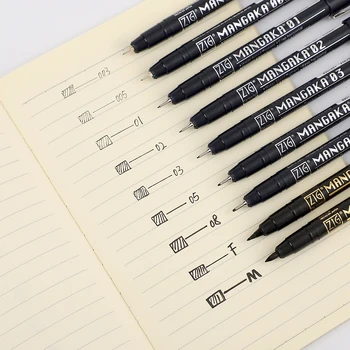 003
005
01
02
03
05
08
F
M
ZIG MANGAKA
ZIG MANGAKA 01
ZIG MANGAKA 02
ZIG MANGAKA 03
ZIG MANGAKA
ZIG MANGAKA
ZIG MANGAKA
ZIG MANG
ZIG